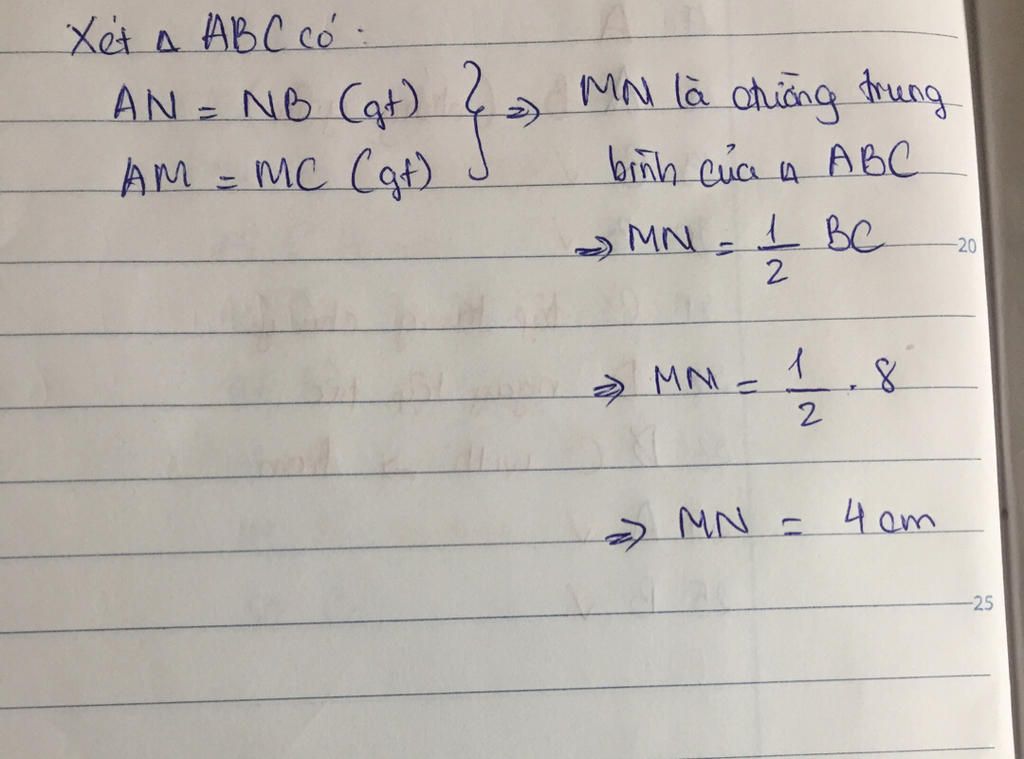 Xét Δ ABC có:
AN = NB (gt) } => MN là đường trung
AM = MC (gt) bình của Δ ABC
=> MN = 1/2 BC
20
=> MN = 1/2 . 8
=> MN = 4cm
25